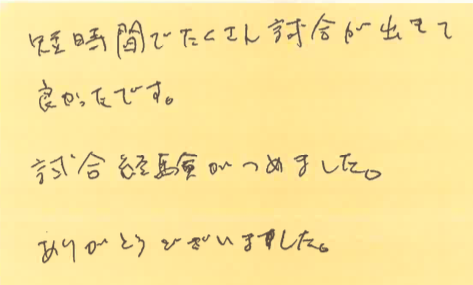 短時間でたくさん試合が出来て
良かったです。
試合経験がつめました。
ありがとうございました。